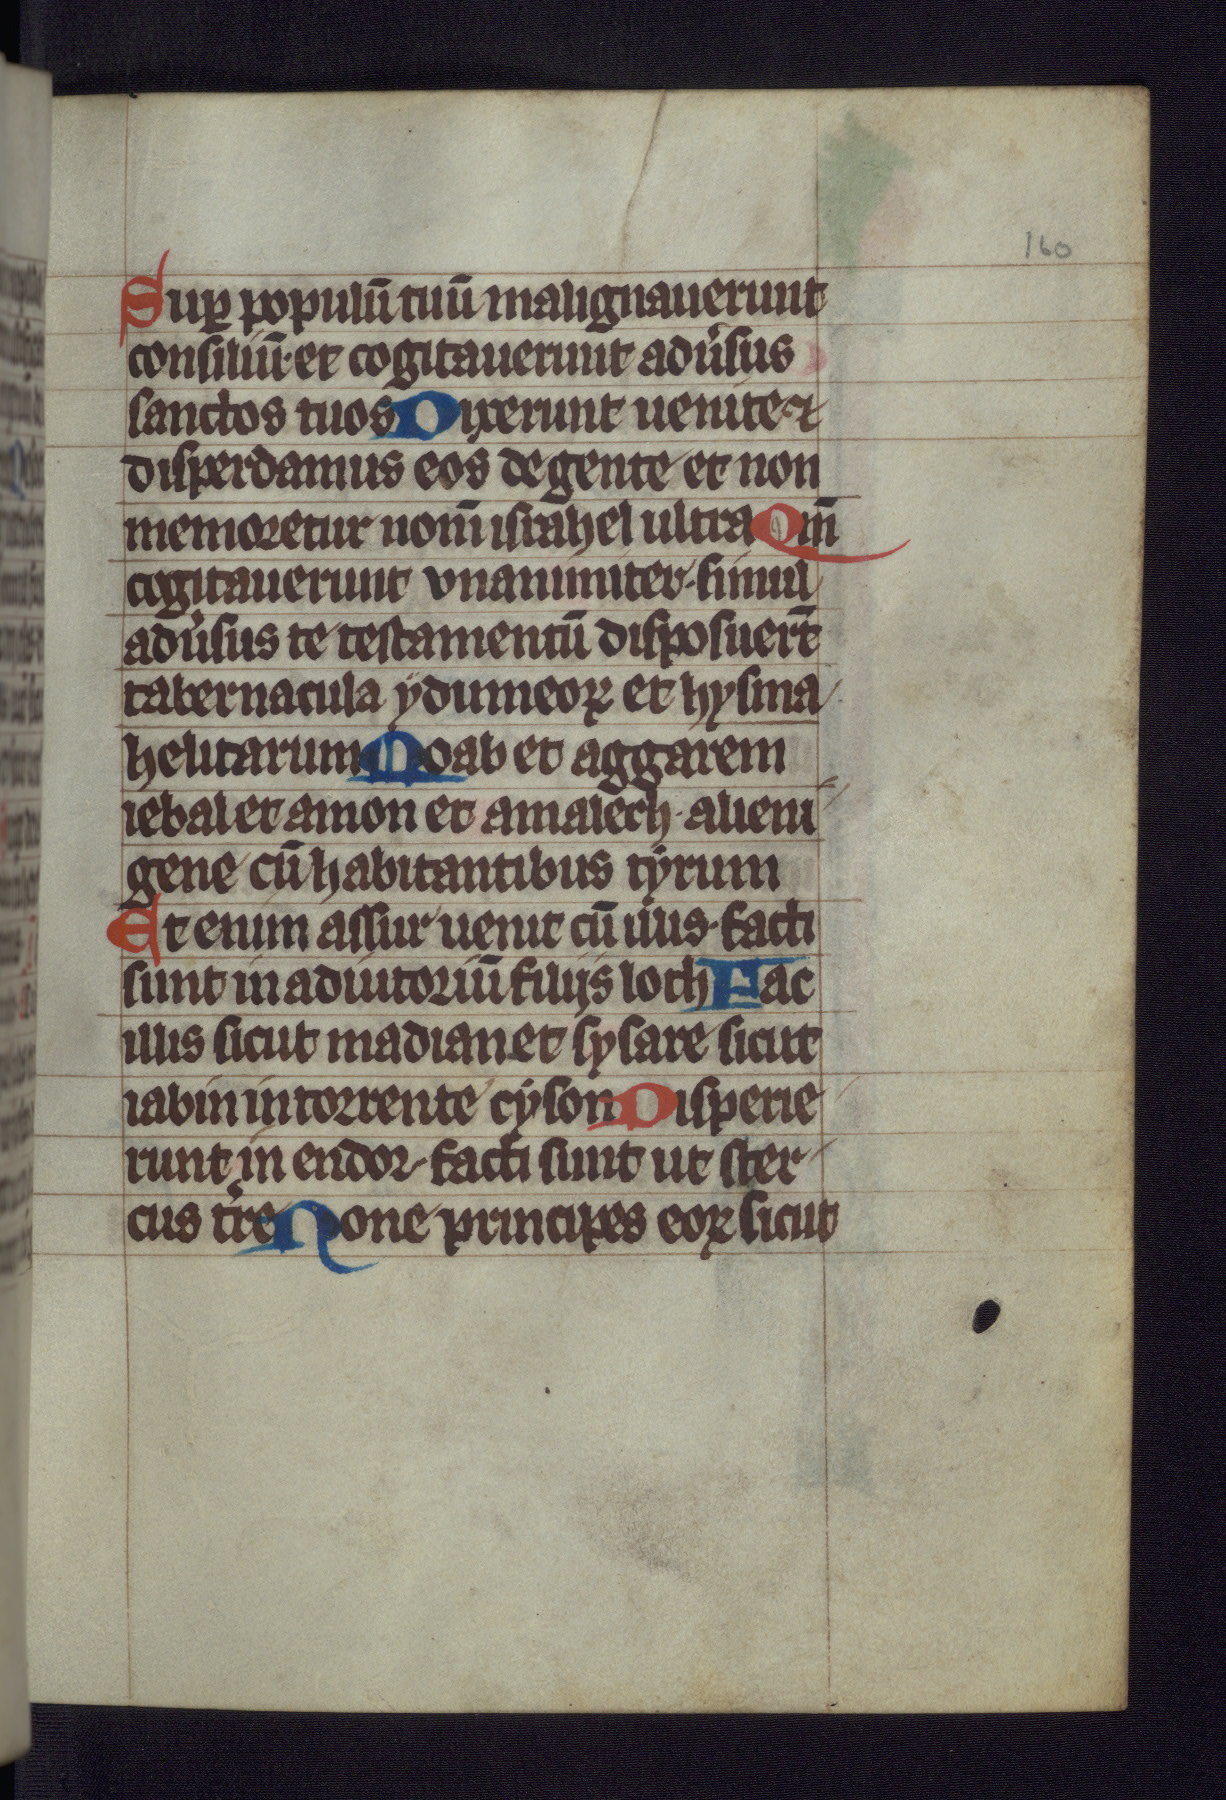 160
Suꝑ populū tuū malignauerunt
consiliū· et cogitauerunt adu̓sus
sanctos tuos Dixerunt uenite ⁊
disperdamus eos de gente et non
memoretur nom̄ isrāhel ultra Qm̄
cogitauerunt vnanimiter· simul
adu̓sus te testamentū disposuer̄t
tabernacula ydumeoꝝ et hysma
helitarum Moab et aggareni
iebal et amon et amalech· alieni
gene cū habitantibus tyrum
Et enim assur uenit cū illis· facti
sunt in adiutoriū filijs loth Fac
illis sicut madian et sysare sicut
iabin in torrente cyson Disperie
runt in endor· facti sunt ut ster
cus tr̄e Pone principes eoꝝ sicut